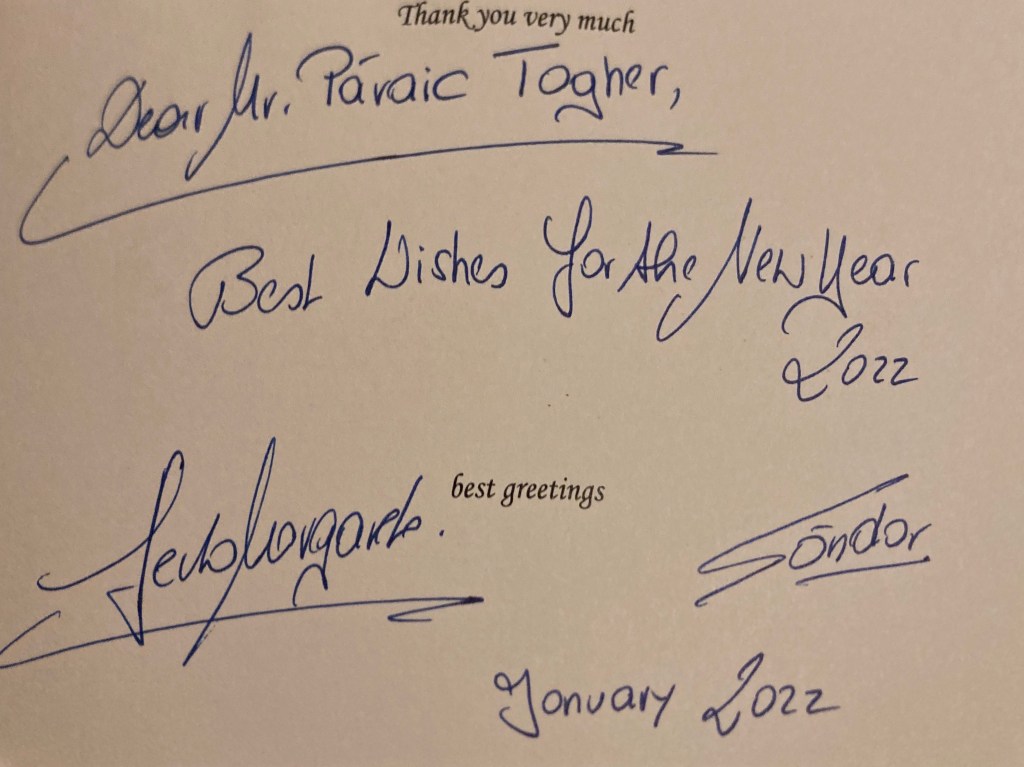 Thank you very much
Dear Mr. Páraic Togher,
Best Wishes for the New Year
2022
best greetings
Sándor
January 2022